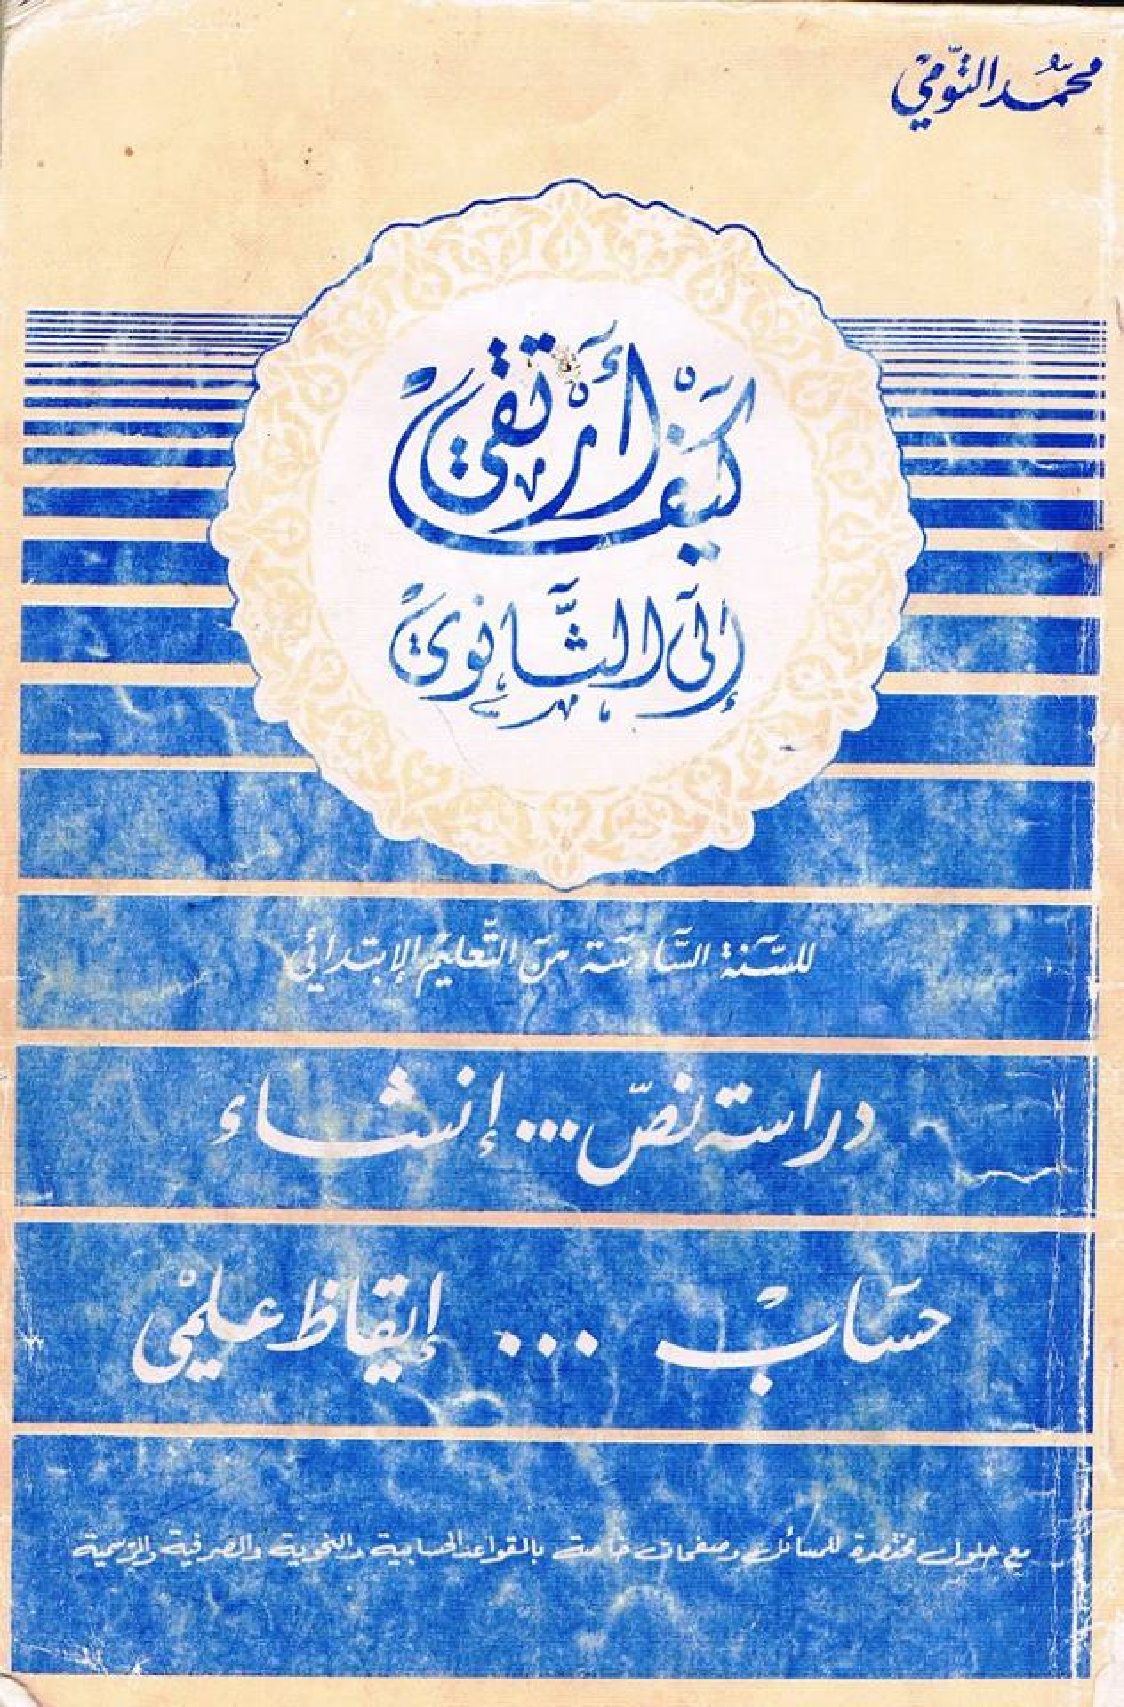 محمد التومي
كيف أرتقي
إلى الثانوي
للسنة السادسة من التعليم الابتدائي
دراسة نص ... إنشاء
حساب ... إيقاظ علمي
مع حلول مختصرة للمسائل وصفحات خاصة بالقواعد الحسابية والنحوية والصرفية والرسمية